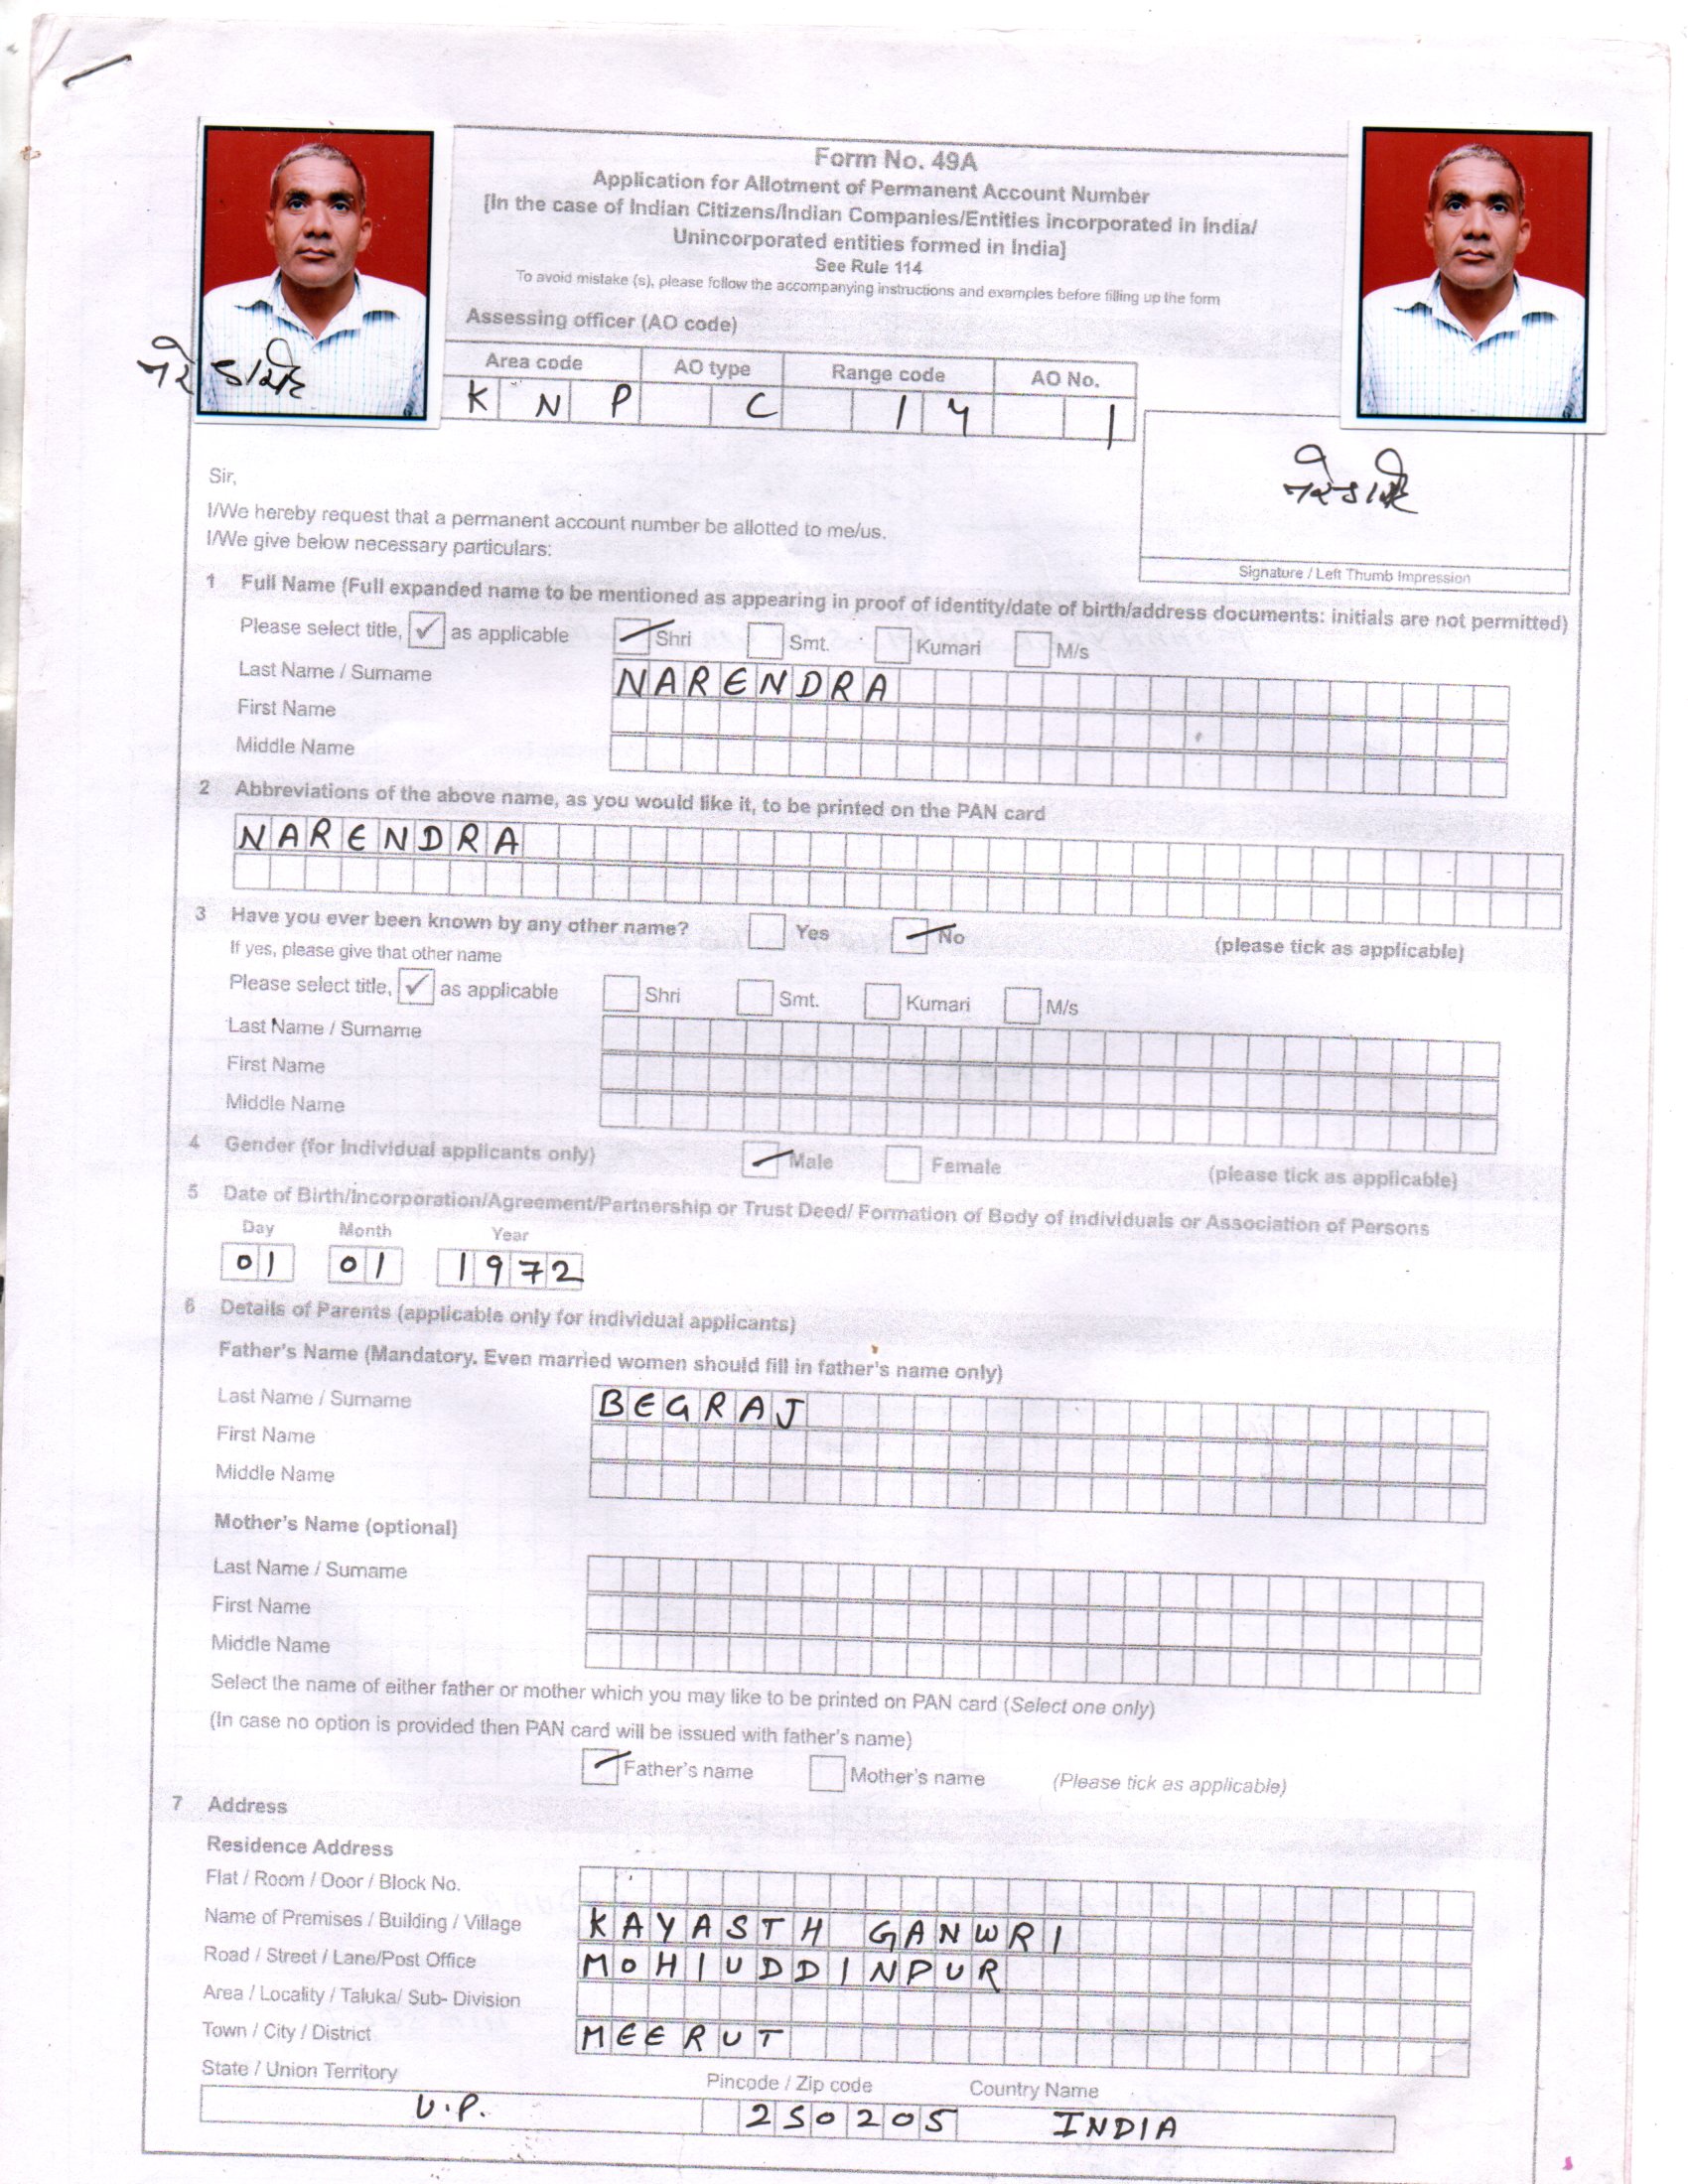 Form No. 49A
Application for Allotment of Permanent Account Number
[In the case of Indian Citizens/Indian Companies/Entities incorporated in India/
Unincorporated entities formed in India]
See Rule 114
To avoid mistake (s), please follow the accompanying instructions and examples before filling up the form
Assessing officer (AO code)
Area code AO type Range code AO No.
K N P C 1 4 1
Sir,
I/We hereby request that a permanent account number be allotted to me/us.
I/We give below necessary particulars:
Signature / Left Thumb Impression
1 Full Name (Full expanded name to be mentioned as appearing in proof of identity/date of birth/address documents: initials are not permitted)
Please select title, ✓ as applicable Shri Smt. Kumari M/s
Last Name / Surname NARENDRA
First Name
Middle Name
2 Abbreviations of the above name, as you would like it, to be printed on the PAN card
NARENDRA
3 Have you ever been known by any other name? Yes No (please tick as applicable)
If yes, please give that other name
Please select title, ✓ as applicable Shri Smt. Kumari M/s
Last Name / Surname
First Name
Middle Name
4 Gender (for Individual applicants only) Male Female (please tick as applicable)
5 Date of Birth/Incorporation/Agreement/Partnership or Trust Deed/ Formation of Body of individuals or Association of Persons
Day Month Year
01 01 1972
6 Details of Parents (applicable only for individual applicants)
Father's Name (Mandatory. Even married women should fill in father's name only)
Last Name / Surname BEGRAJ
First Name
Middle Name
Mother's Name (optional)
Last Name / Surname
First Name
Middle Name
Select the name of either father or mother which you may like to be printed on PAN card (Select one only)
(In case no option is provided then PAN card will be issued with father's name)
Father's name Mother's name (Please tick as applicable)
7 Address
Residence Address
Flat / Room / Door / Block No.
Name of Premises / Building / Village KAYASTH GANWRI
Road / Street / Lane/Post Office MOHIUDDINPUR
Area / Locality / Taluka/ Sub- Division
Town / City / District MEERUT
State / Union Territory Pincode / Zip code Country Name
U.P. 250205 INDIA